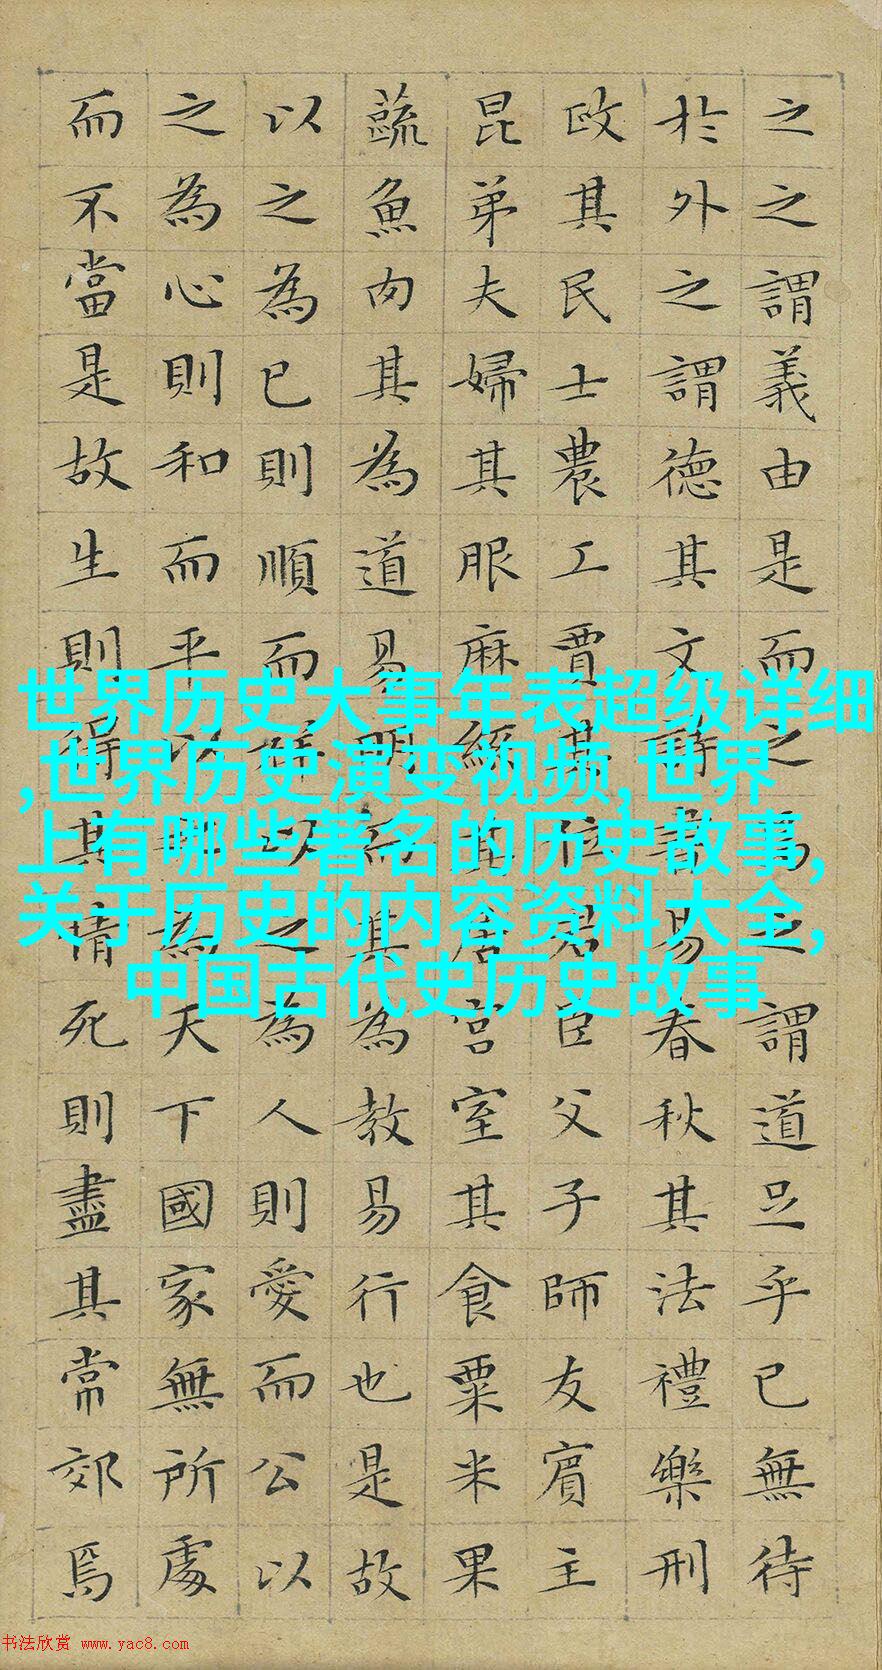 之之謂義由是而之焉之謂道足乎已無待
於外之謂德其文詩書易春秋其法禮樂刑
政其民士農工賈其位君臣父子師友賓主
昆弟夫婦其服麻絲其居宮室其食粟米果
蔬魚肉其為道易明而其為教易行也是故
以之為已則順而祥以之為人則愛而公以
之為心則和而平以之為天下國家無所處
而不當是故生則得其情死則盡其常郊焉
世界历史大事年表超级详细
,世界历史演变视频,世界
上有哪些著名的历史故事,
关于历史的内容资料大全,
中国古代史历史故事
书法欣赏 www.yac8.com